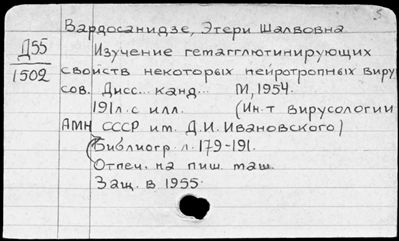 5
Вардосанидзе, Этери Шалвовна
Д55
1502
Изучение гемагглютинирующих
свойств некоторых нейротропных виру
сов. Дисс. канд... М, 1954.
191л. с илл. (Ин.т вирусологии
АМН СССР им. Д.И. Ивановского)
Библиогр. л. 179-191.
Отпеч. на пиш. маш.
Защ. в 1955.